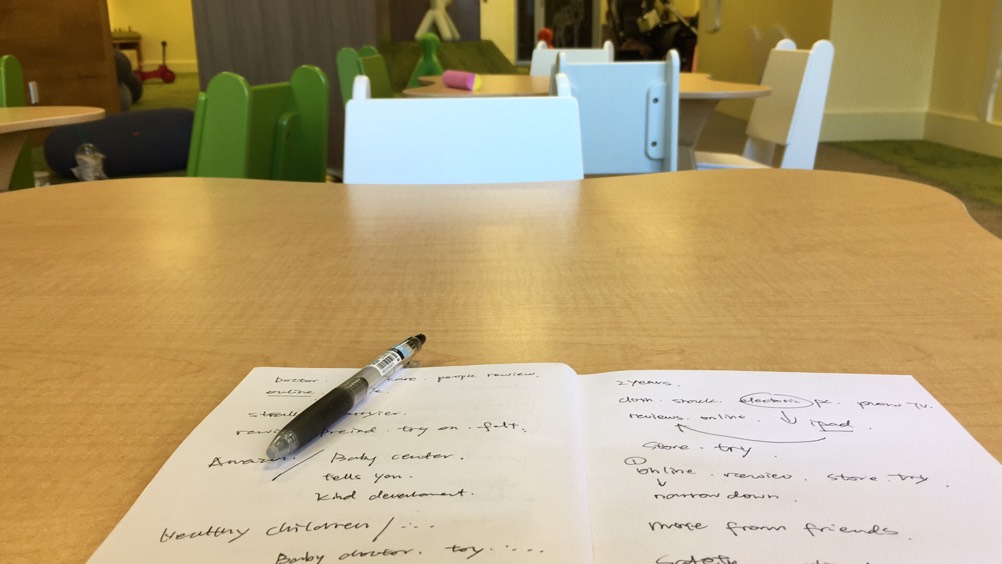 Doctor. care. people review.
online
review friend. try on. felt.
Amazon / Baby center.
tells you.
kind development.
Healthy children / ....
Baby doctor. toy.....
2 years.
cloth. snack. electronic pc. phone TV.
reviews. online. ipad
store. try
① online. review. store. try.
narrow down.
more from friends.